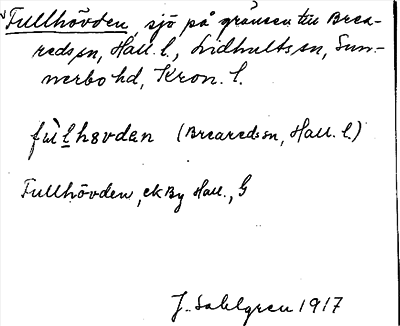 Fullhövden, sjö på gränsen till Brea-
redssn, Hall. l., Lidhultssn, Sun-
nerbo hd, Kron. l.
fu̇l̲hɘvdɛn (Breareds sn, Hall. l.)
Fullhövden, ekBy Hall., G
J. Sahlgren 1917